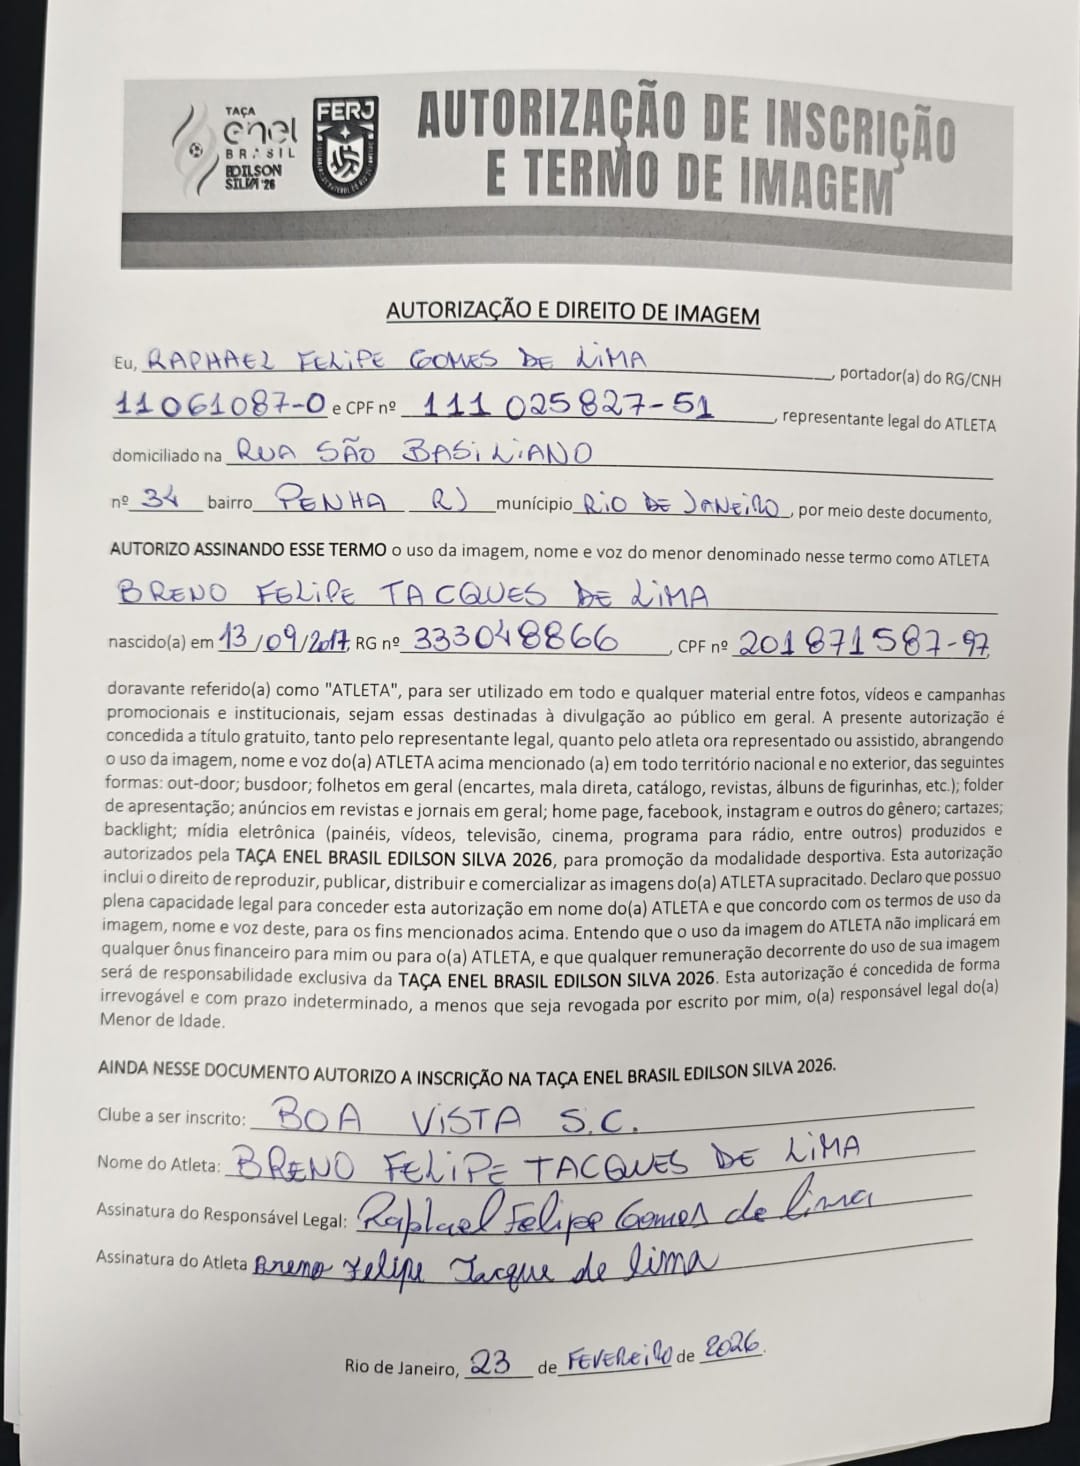 TAÇA
enel
BRASIL
EDILSON
SILVA '26
FERJ
AUTORIZAÇÃO DE INSCRIÇÃO
E TERMO DE IMAGEM
AUTORIZAÇÃO E DIREITO DE IMAGEM
Eu, RAPHAEL FELIPE GOMES DE LIMA, portador(a) do RG/CNH
11061087-0 e CPF nº 111 025827-51, representante legal do ATLETA
domiciliado na RUA SÃO BASILIANO
nº 34 bairro PENHA RJ munícipio RIO DE JANEIRO, por meio deste documento,
AUTORIZO ASSINANDO ESSE TERMO o uso da imagem, nome e voz do menor denominado nesse termo como ATLETA
BRENO FELIPE TACQUES DE LIMA
nascido(a) em 13/09/2017, RG nº 333048866, CPF nº 201871587-97
doravante referido(a) como "ATLETA", para ser utilizado em todo e qualquer material entre fotos, vídeos e campanhas
promocionais e institucionais, sejam essas destinadas à divulgação ao público em geral. A presente autorização é
concedida a título gratuito, tanto pelo representante legal, quanto pelo atleta ora representado ou assistido, abrangendo
o uso da imagem, nome e voz do(a) ATLETA acima mencionado (a) em todo território nacional e no exterior, das seguintes
formas: out-door; busdoor; folhetos em geral (encartes, mala direta, catálogo, revistas, álbuns de figurinhas, etc.); folder
de apresentação; anúncios em revistas e jornais em geral; home page, facebook, instagram e outros do gênero; cartazes;
backlight; mídia eletrônica (painéis, vídeos, televisão, cinema, programa para rádio, entre outros) produzidos e
autorizados pela TAÇA ENEL BRASIL EDILSON SILVA 2026, para promoção da modalidade desportiva. Esta autorização
inclui o direito de reproduzir, publicar, distribuir e comercializar as imagens do(a) ATLETA supracitado. Declaro que possuo
plena capacidade legal para conceder esta autorização em nome do(a) ATLETA e que concordo com os termos de uso da
imagem, nome e voz deste, para os fins mencionados acima. Entendo que o uso da imagem do ATLETA não implicará em
qualquer ônus financeiro para mim ou para o(a) ATLETA, e que qualquer remuneração decorrente do uso de sua imagem
será de responsabilidade exclusiva da TAÇA ENEL BRASIL EDILSON SILVA 2026. Esta autorização é concedida de forma
irrevogável e com prazo indeterminado, a menos que seja revogada por escrito por mim, o(a) responsável legal do(a)
Menor de Idade.
AINDA NESSE DOCUMENTO AUTORIZO A INSCRIÇÃO NA TAÇA ENEL BRASIL EDILSON SILVA 2026.
Clube a ser inscrito: BOA VISTA S.C.
Nome do Atleta: BRENO FELIPE TACQUES DE LIMA
Assinatura do Responsável Legal: Raphael Felipe Gomes de lima
Assinatura do Atleta Breno Felipe Tacque de lima
Rio de Janeiro, 23 de FEVEREIRO de 2026.